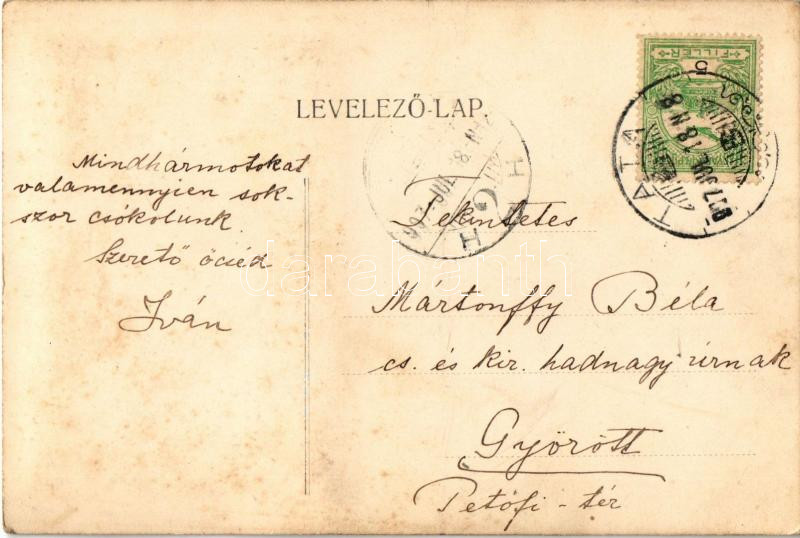 LEVELEZŐ-LAP.
FILLÉR
5
TATA
Mindhármotokat
valamennyien sok-
szor csókolunk
Szerető öcséd
Iván
Tekintetes
Mártonffy Béla
cs. és kir. hadnagy úrnak
Győrött
Petőfi-tér
darabanth